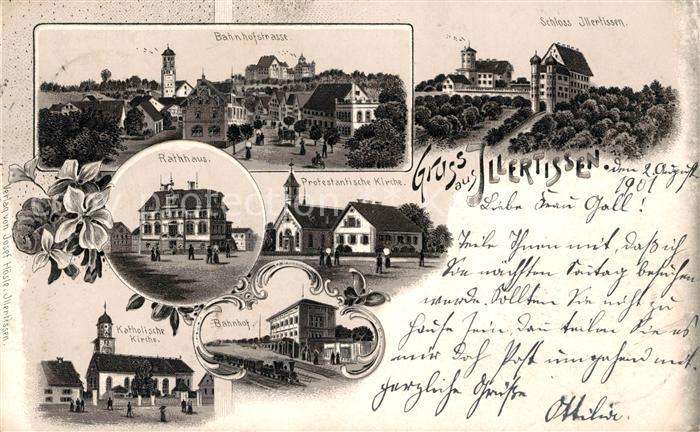 Bahnhofstrasse.
Schloss Illertissen.
Rathhaus.
Protestantische Kirche.
Gruss aus Illertissen.
den 2. August
1901
Liebe Frau Goll!
Teile Ihnen mit, daß ich
Sie nächsten Freitag besuchen
werde. Sollten Sie nicht zu
Hause sein, dan teilen Sie es
mir doch Post umgehend mit.
herzliche Grüße
Ottilie
Katholische
Kirche.
Bahnhof.
Verlag von Josef Hösle, Illertissen.